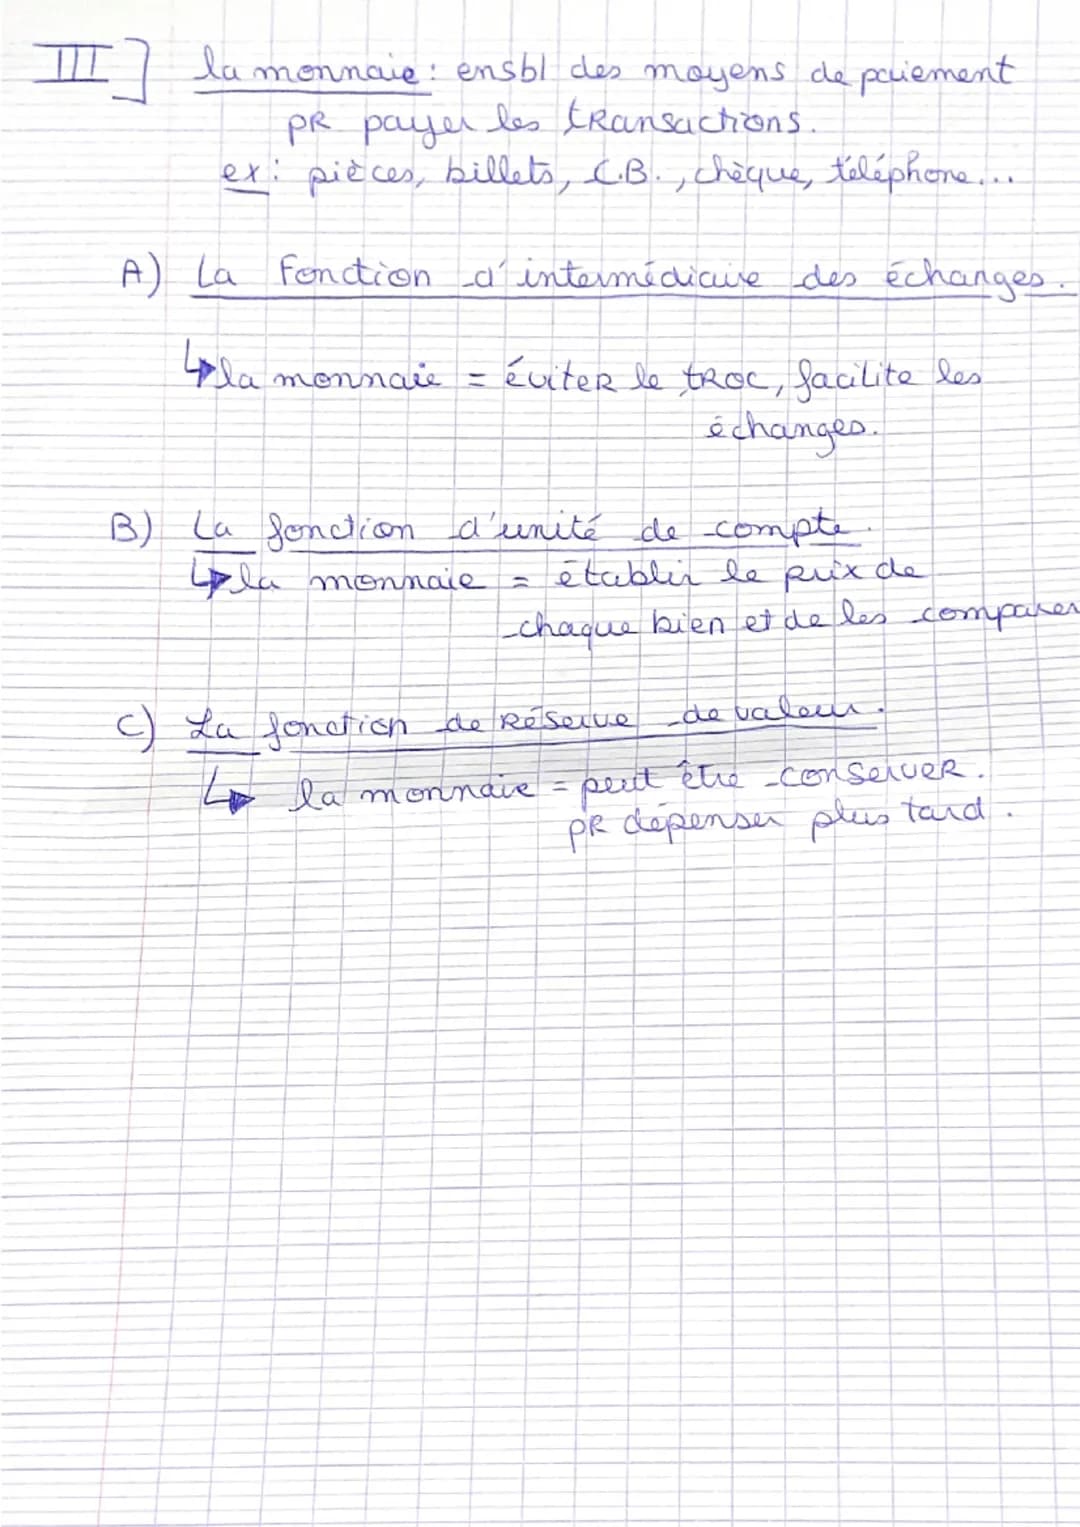 III] la monnaie : ensbl des moyens de paiement
pR payer les transactions.
ex : pièces, billets, C.B., chèque, téléphone...
A) La Fonction d'intermédiaire des échanges.
↳ la monnaie = éviter le troc, facilite les
échanges.
B) La fonction d'unité de compte.
↳ la monnaie = établir le prix de
chaque bien et de les comparer
C) La fonction de Réserve de valeur.
↳ la monnaie = peut être conserver.
pR dépenser plus tard.